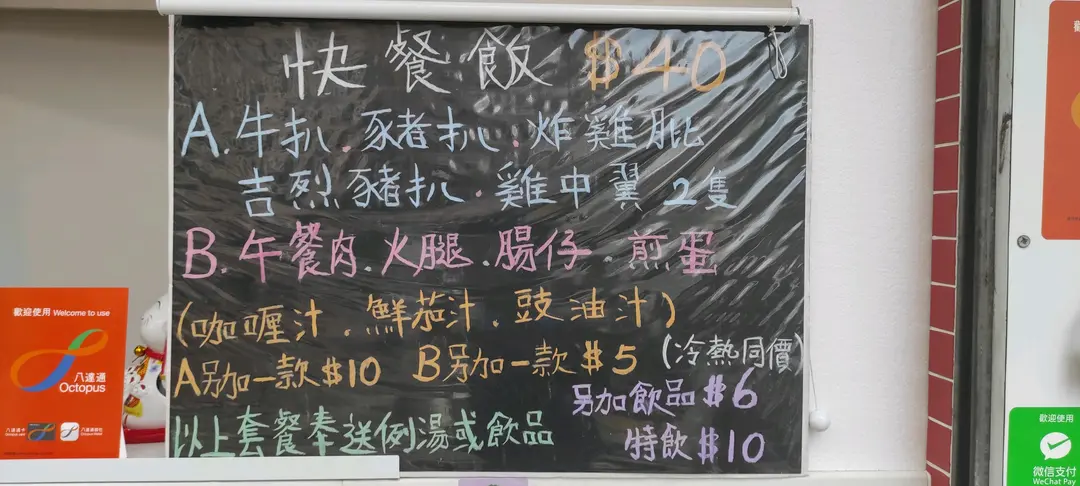 快餐飯 $40
A. 牛扒.豬扒.炸雞肶
吉烈豬扒.雞中翼2隻
B. 午餐肉.火腿.腸仔.煎蛋
(咖喱汁.鮮茄汁.豉油汁)
A另加一款$10 B另加一款$5 (冷熱同價)
另加飲品$6
以上套餐奉送例湯或飲品
特飲$10
歡迎使用 Welcome to use
八達通
Octopus
八達通卡
歡迎使用
微信支付
WeChat Pay